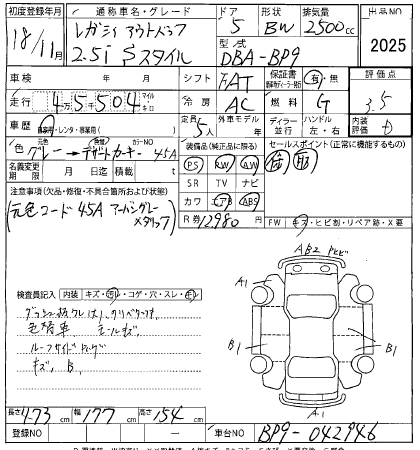 初度登録年月 通称車名・グレード ドア 形状 排気量 出品NO
18/11月 レガシィ アウトバック 5 BW 2500cc
2.5i Sスタイル 型式 DBA-BP9 2025
車検 年 月 シフト FAT 保証書 有・無 評価点
走行 45504 マイル km 冷房 AC 燃料 G 3.5
車歴 自家用・レンタ・事業用( ) 定員 5人 外車モデル 年 ディーラー 並行 ハンドル 左・右 内装評価 D
色 元色 グレー → 色替 デザートカーキー カラーNO 45A 装備品(純正品に限る) セールスポイント(正常に機能するもの)
名義変更期限 月 日迄 積載 t PS PW AW 取 記
SR TV ナビ
注意事項(欠品・修復・不具合箇所および状態) カワ エアB ABS
元色コード 45A アーバングレーメタリック R券 12980円 FW キズ・ヒビ割・リペア跡・X要
AB2 トビビ
A1
検査員記入 内装 キズ・切レ・コゲ・穴・スレ・汚レ
色替車 モールキズ
B1 B1
キズ、B
長さ 473cm 幅 177cm 高さ 154cm
A1
登録NO — 車台NO BP9-042946